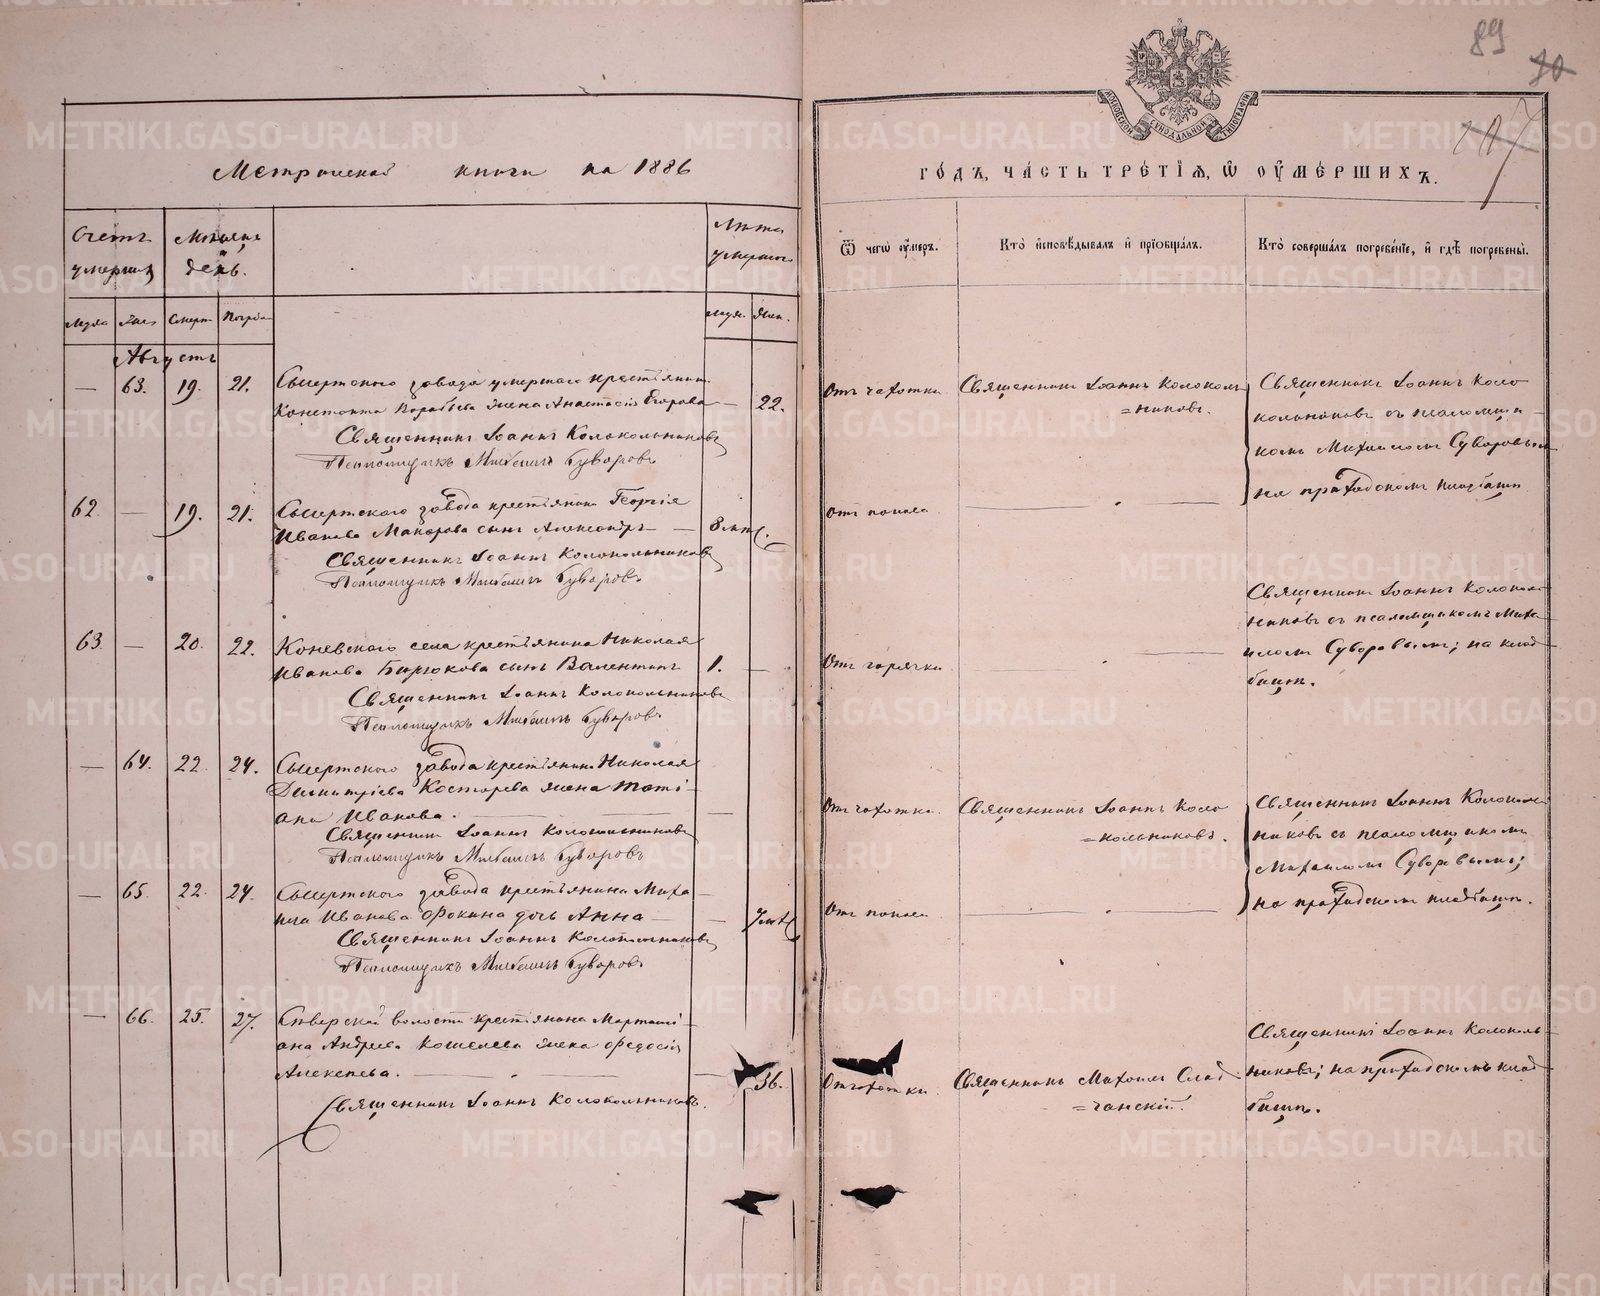 89
90
107
МОСКОВСКОЙ СѴНОДАЛЬНОЙ ТИПОГРАФІИ
Метрической книги на 1886
го́дъ, ча́сть тре́тїѧ, ѡ҆ ᲂу҆ме́ршихъ.
Счетъ умершихъ
Мѣсяцъ и день.
Лѣта умершаго
Ѿ чегѡ̀ ᲂу҆́меръ.
Кто̀ и҆сповѣ́дывалъ и҆ прїѡбща́лъ.
Кто̀ соверша́лъ погребе́нїе, и҆ гдѣ̀ погребены̀.
Муж. Жен. Смерт. Погреб. Муж. Жен.
Августъ
— 63. 19. 21. Сысертскаго завода умершаго крестьянина
Воробьева жена Анастасія Егорова — 22.
Священникъ Іоаннъ Колокольниковъ
Псаломщикъ Михаилъ Суворовъ
Отъ чахотки.
Священникъ Іоаннъ Колоколь
=никовъ.
Священникъ Іоаннъ Коло
кольниковъ съ псаломщи
комъ Михаиломъ Суворовымъ
на приходскомъ кладбищѣ
62. — 19. 21. Сысертскаго завода крестьянина Георгія
Иванова Макарова сынъ Александръ — 8 мѣс.
Священникъ Іоаннъ Колокольниковъ
Псаломщикъ Михаилъ Суворовъ
Отъ поноса
63. — 20. 22. Коневскаго села крестьянина Николая
Иванова Бирюкова сынъ Валентинъ 1. —
Священникъ Іоаннъ Колокольниковъ
Псаломщикъ Михаилъ Суворовъ
Отъ горячки
Священникъ Іоаннъ Колоколь
никовъ съ псаломщикомъ Миха
иломъ Суворовымъ; на клад
бищѣ.
— 64. 22. 24. Сысертскаго завода крестьянина Николая
Димитріева Костарева жена Тати
ана Иванова. —
Священникъ Іоаннъ Колокольниковъ
Псаломщикъ Михаилъ Суворовъ
Отъ чахотки.
Священникъ Іоаннъ Коло
=кольниковъ.
Священникъ Іоаннъ Колоколь
никовъ съ псаломщикомъ
Михаиломъ Суворовымъ;
на приходскомъ кладбищѣ.
— 65. 22. 24. Сысертскаго завода крестьянина Миха
ила Иванова Фокина дочь Анна —
Священникъ Іоаннъ Колокольниковъ
Псаломщикъ Михаилъ Суворовъ
Отъ поноса
— 66. 25. 27. волости крестьянина Мартини
ана Андреева Кошелева жена Федосія
Алексѣева. — 36.
Священникъ Іоаннъ Колокольниковъ.
Отъ чахотки.
Священникъ МихаилъСлад
=чанскій.
Священникъ Іоаннъ Колоколь
никовъ; на приходскомъ клад
бищѣ.
METRIKI.GASO-URAL.RU